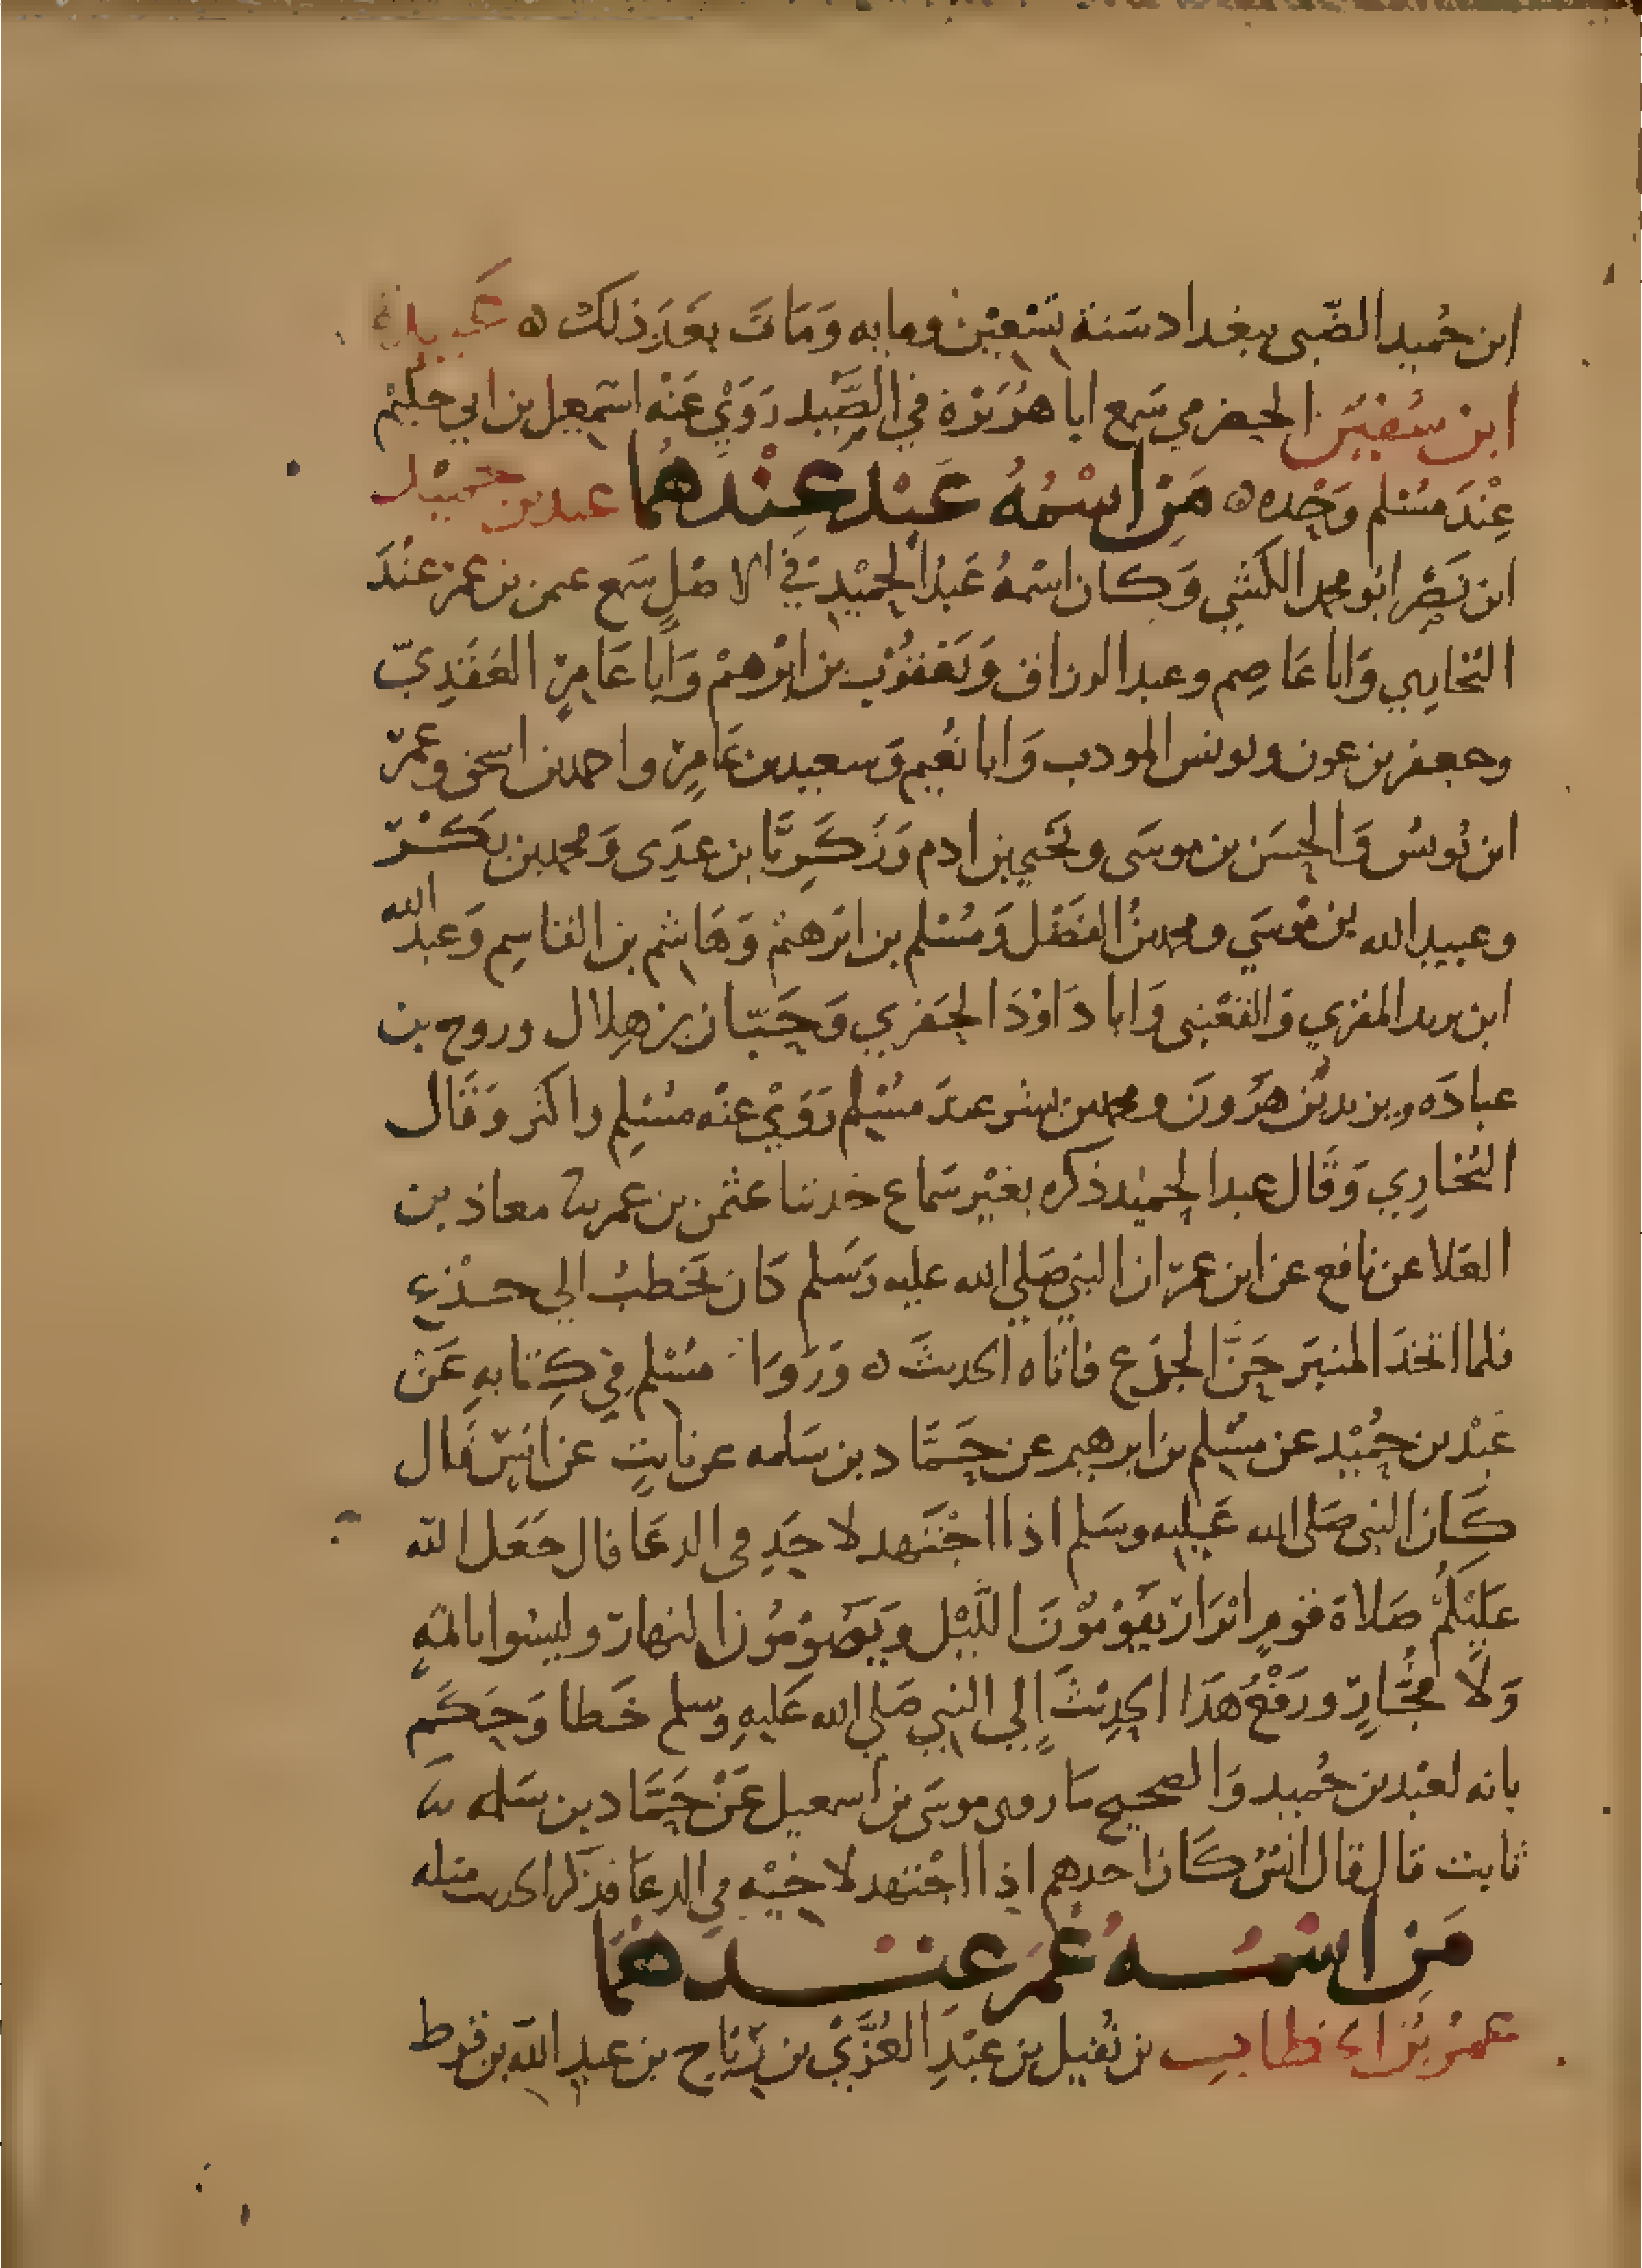 ابن حُميد الضّبي ببغداد سَنة تسْعين ومايه وَمَات بعَد ذلك ه عَبيدة
ابن سُفيَن الحضرمي سَمع ابا هُرَيرَة في الصَّيد رَوَيْ عَنْه اسمعيل بن ابي حكيم
عِنْدَ مسُلم وَحْده ه مَن اسْمُهُ عَبْد عِنْدهُمَا عبد بن حميد
ابن نَصْر ابو محمد الكشي وَكان اسْمهُ عَبدُ الحميْد في الاصْل سَمع عثمن بن عمر عنْدَ
البخاري وَابا عَاصِم وعبد الرزاق وَيَعْقوُب بن ابرْهيم وَابا عَامِر العَقَدِيّ
وجعفر بن عون ويونس المودب وَابا نُعيم وَسعيد بن عَامِر واحمد بن اسحق وعمر
ابن يُونسُ وَالحسَن بن موسَى ويحَيي بن ادم وَزَكَرِيَّا بن عدَي وَمحمد بن بَكْر
وعبيد الله بن مُوسَي ومحمد بنُ الفَضْل وَمُسْلم بن ابرَهيم وَهَاشم بن القاسِم وَعبد الله
ابن يزيد المقري وَالقَعْنبى وَابا دَاوْدَ الحَفري وَحَبّان بن هِلال وروح بن
عبادَه ويزيد بُن هَرُونَ ومحمد بن بشر عند مسُلم رَوَيْ عنْه مسْلِم واكثر وَقَال
البُخَارِي وَقَال عبد الحميْد ذكره بغيْر سَماع حَدثنا عثمن بن عمر ثنا معاذ بن
العَلا عن نافع عن ابن عمرَ ان النبي صَلي الله عليه وَسَلم كان يَخطبُ الي جذع
فلما اتخذَ المنبَر حَنَّ الجذع فاتاه الحديثَ ه وَرَوَا مسْلم في كِتابهِ عَن
عَبْد بن حُميْد عن مسُلم بن ابرهيم عن حَمَّاد بن سَلمه عن ثابتٍ عن انَس قال
كَان النبي صَلى الله عَليه وسَلم اذا اجْتَهد لاحَدٍ في الدعَا قال جَعَل الله
عَليْكُمْ صَلاة قومٍ ابْرَارَ يَقوْمُوْنَ اللّيْل وَيَصُوْمُوْن النهارَ وليسُوا باثمةٍ
وَلَا فجَّارٍ ورَفعُ هَذا الحدِيثَ إلي النبي صَلي الله عَليهِ وسلم خَطا وَحَكم
بانه لعَبْد بن حُميد وَالصحيح مَا روى موسَى بن اسمعيل عَنْ حَمَّاد بن سَلمه ثنا
ثابت قال قال انسُ كَان احدهم اذا اجْتهد لاخيْه في الدعَا فذَكر الحديث مثله
مَن اسْمُـهُ عُمَر عنـدهمَا
عمرُ بنُ الخطاب بن نُفيل بن عَبْدِ العُزَّيْ بن رِيَاح بن عبد الله بن قرط